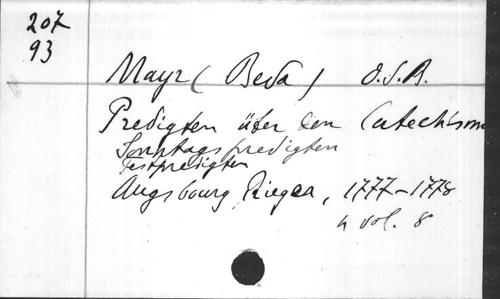 207
93
Mayr (Beda) O.S.B.
Predigten über den Catechism
Sonntagspredigten
Festpredigten
Augsbourg Rieger, 1777-1778
4 vol. 8